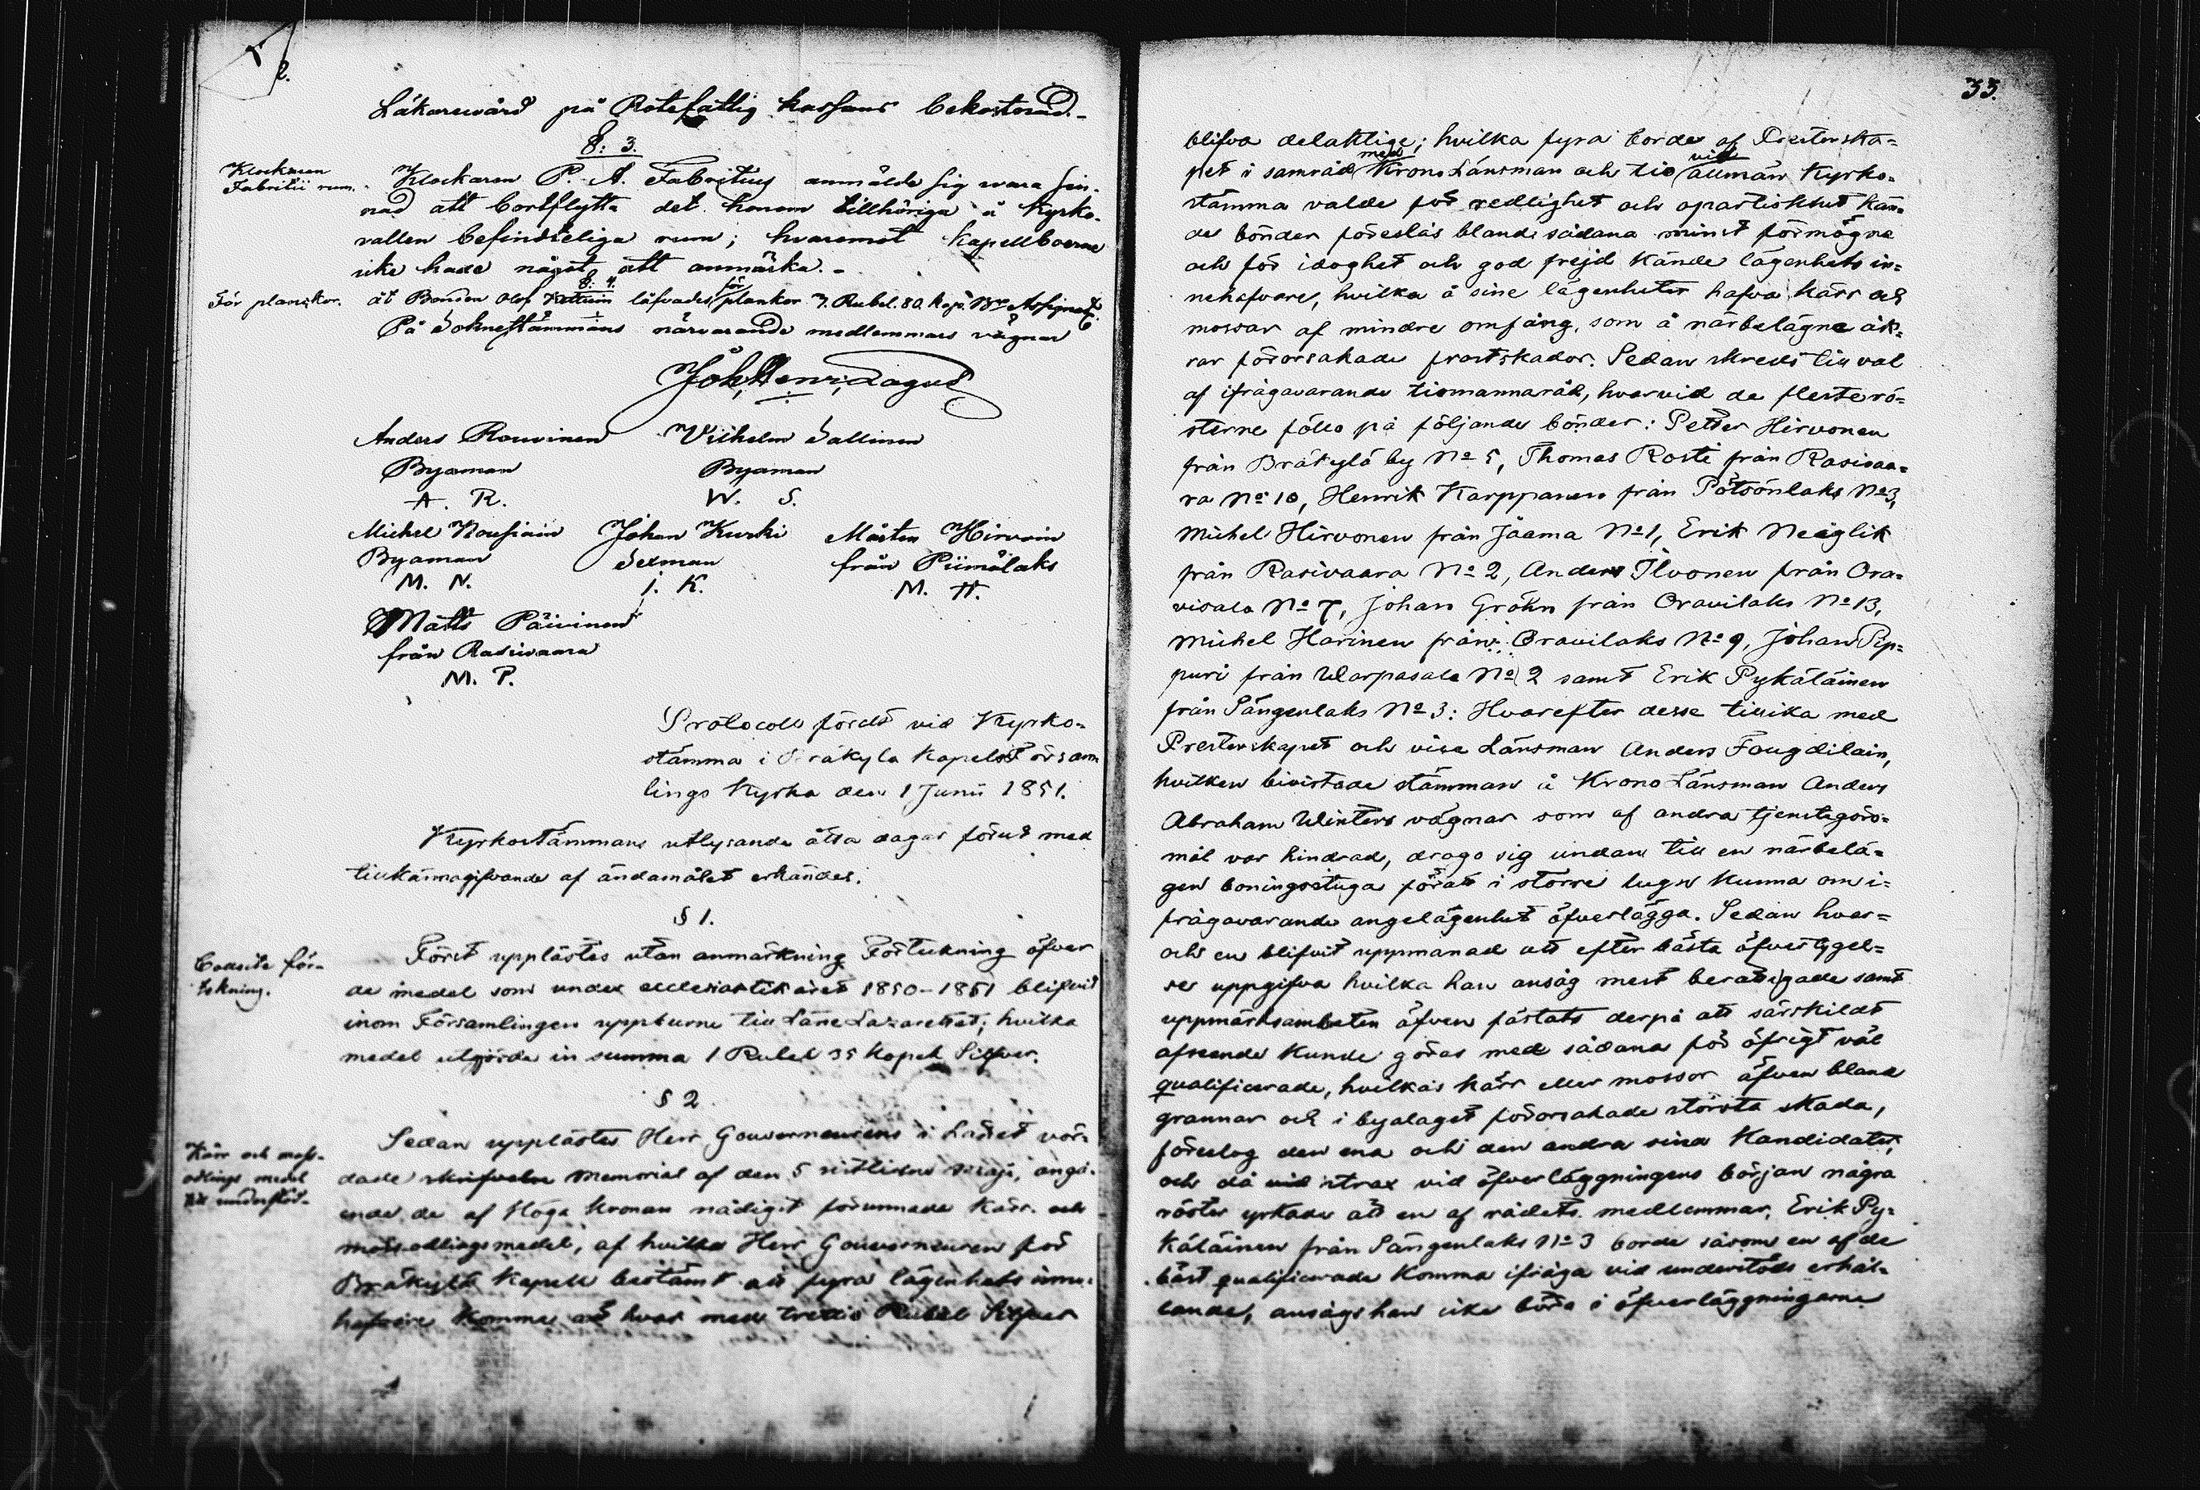 2.
Läkarewård på Rotefattig kassans bekostnad.-
§: 3.
Klockaren
Fabritii rum.
Klockaren P. A. Fabritius anmälde sig wara sin-
nad att bortflytta det honom tillhöriga å Kyrko-
vallen befindteliga rum; hvaremot Kapellboerne
icke hade något att anmärka.-
§: 4.
För planckor.
åt Bonden Olof läfvades för plankor 7. Rubel. 80. Kop. Bco Assignat.
På Soknestämmans närvarande medlemmars vägnar
Joh. Henr. Lagus
Anders Rouvinen Vilhelm Sallinen
Byaman Byaman
A. R. W. S.
Michel Nousiain Johan Kurki Mårten Hirvoin
Byaman Sexman från Piimälaks
M. N. J. K. M. H.
Matts Päivinen
från Rasivaara
M. P.
Protocoll fördt vid Kyrko-
stämma i Bräkylä Kapellförsam
lings Kyrka den 1 Junii 1851.
Kyrkostämmans utlysande åtta dagar förut med
tillkännagifvande af ändamålet erkändes.
§ 1.
för-
tekning.
Först upplästes utan anmärkning Förteckning öfver
de medel som under ecclesiastik året 1850-1851 blifvit
inom Församlingen uppburne till Läne Lazarettet; hvilka
medel utgjorde in summa 1 Rubel 35 Kopek Silfver.
§ 2
Kärr och moss-
odlings medel
till understöd.
Sedan upplästes Herr Gouverneurens i Länet vör-
dade skrifvelse Memorial af den 5 sistlidne Maji, angå-
ende de af Höga Kronan nådigst förunnade Kärr- och
mossodlingsmedel, af hvilka Herr Gouverneuren för
Bräkylä Kapell bestämt att fyra lägenhets inne-
hafvare komma att hvar med trettio Rubel Silfver
33.
blifva delaktige; hvilka fyra borde af Presterska-
pet i samråd med Krono Länsman och tio vid allmän Kyrko-
stämma valde för redlighet och opartiskhet kän-
de bönder föreslås bland sådana minst förmögne
och för idoghet och god frejd kände lägenhets in-
nehafvare, hvilka å sine lägenheter hafva kärr och
mossar af mindre omfång, som å närbelägne åk-
rar förorsakade frostskador. Sedan skreds till val
af ifrågavarande tiomannaråd, hvarvid de fleste rö-
sterne föllo på följande bönder: Petter Hirvonen
från Bräkylä by No 5, Thomas Roste från Rasivaa-
ra No 10, Henrik Karppanen från Potsönlaks No 3,
Michel Hirvonen från Jaama No 1, Erik Neiglik
från Rasivaara No 2, Anders Ilvonen från Ora-
visalo No 7, Johan Gröhn från Oravilaks No 13,
Michel Harinen från Oravilaks No 9, Johan Pip-
puri från Warpasalo No 2 samt Erik Pykäläinen
från Sängenlaks No 3: Hvarefter desse tillika med
Presterskapet och vice Länsman Anders Fougdilain,
hvilken bivistade stämman å Krono Länsman Anders
Abraham Winters vägnar som af andra tjenstegöro-
mål var hindrad, drogo sig undan till en närbelä-
gen boningsstuga föratt i större lugn kunna om i-
frågavarande angelägenhet öfverlägga. Sedan hvar-
och en blifvit uppmanad att efter bästa öfvertygel-
se uppgifva hvilka han ansåg mest berättigade samt
uppmärksamheten äfven fästats derpå att särskildt
afseende kunde göras med sådana för öfrigt väl
qualificerade, hvilkas kärr eller mossor äfven bland
grannar och i byalaget förorsakade största skada,
föreslog den ena och den andra sina Kandidater,
och då vid strax vid öfverläggningens början några
röster yrkade att en af rådets medlemmar, Erik Py-
käläinen från Sängenlaks No 3 borde såsom en af de
bäst qualificerade komma ifråga vid understöds erhål-
lande, ansågs han icke böra i öfverläggningarne